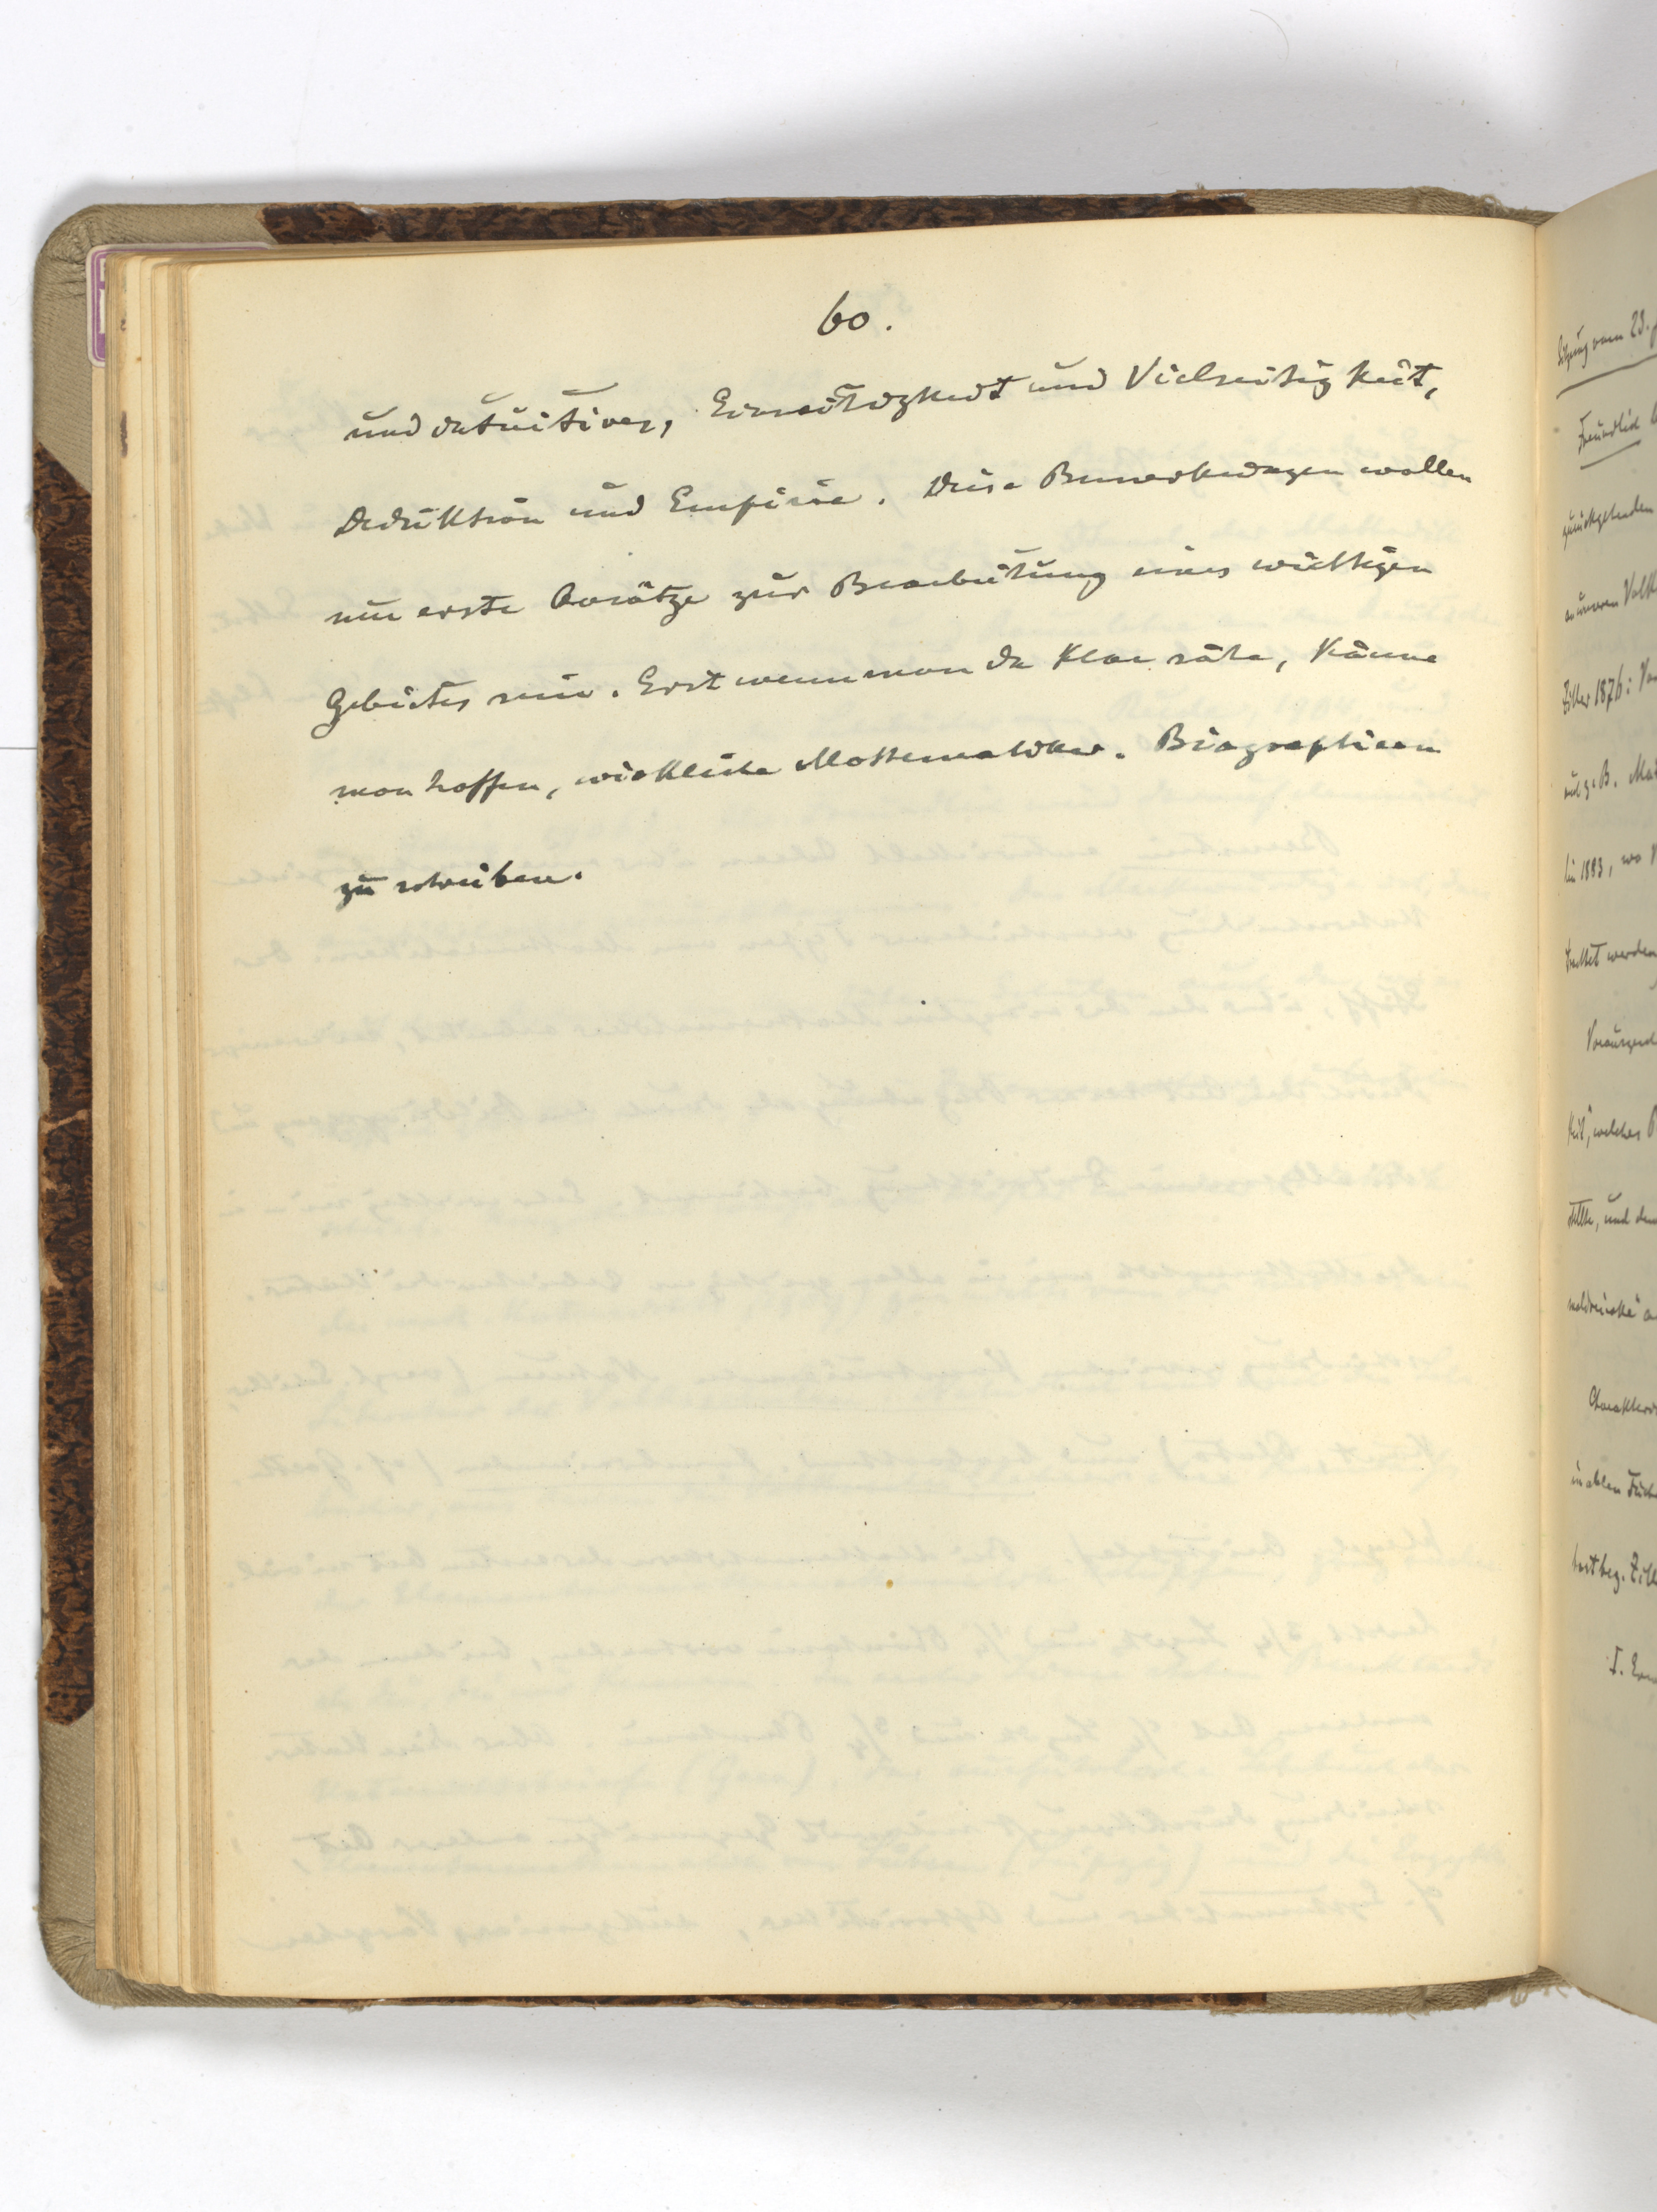 60.
und intuitives, Einseitigkeit und Vielseitigkeit,
Deduktion und Empirie. Diese Bemerkungen wollen
nur erste Ansätze zur Bearbeitung eines wichtigen
Gebietes sein. Erst wenn man da klar sähe, könne
man hoffen, wirkliche Mathematiker-Biographieen
zu schreiben.
Sitzung vom 23.
Freundlich
zurückgehenden
Ziller 1876:
auf z. B.
bis 1883, wo
werden
keit", welches
stellte, und
in allen